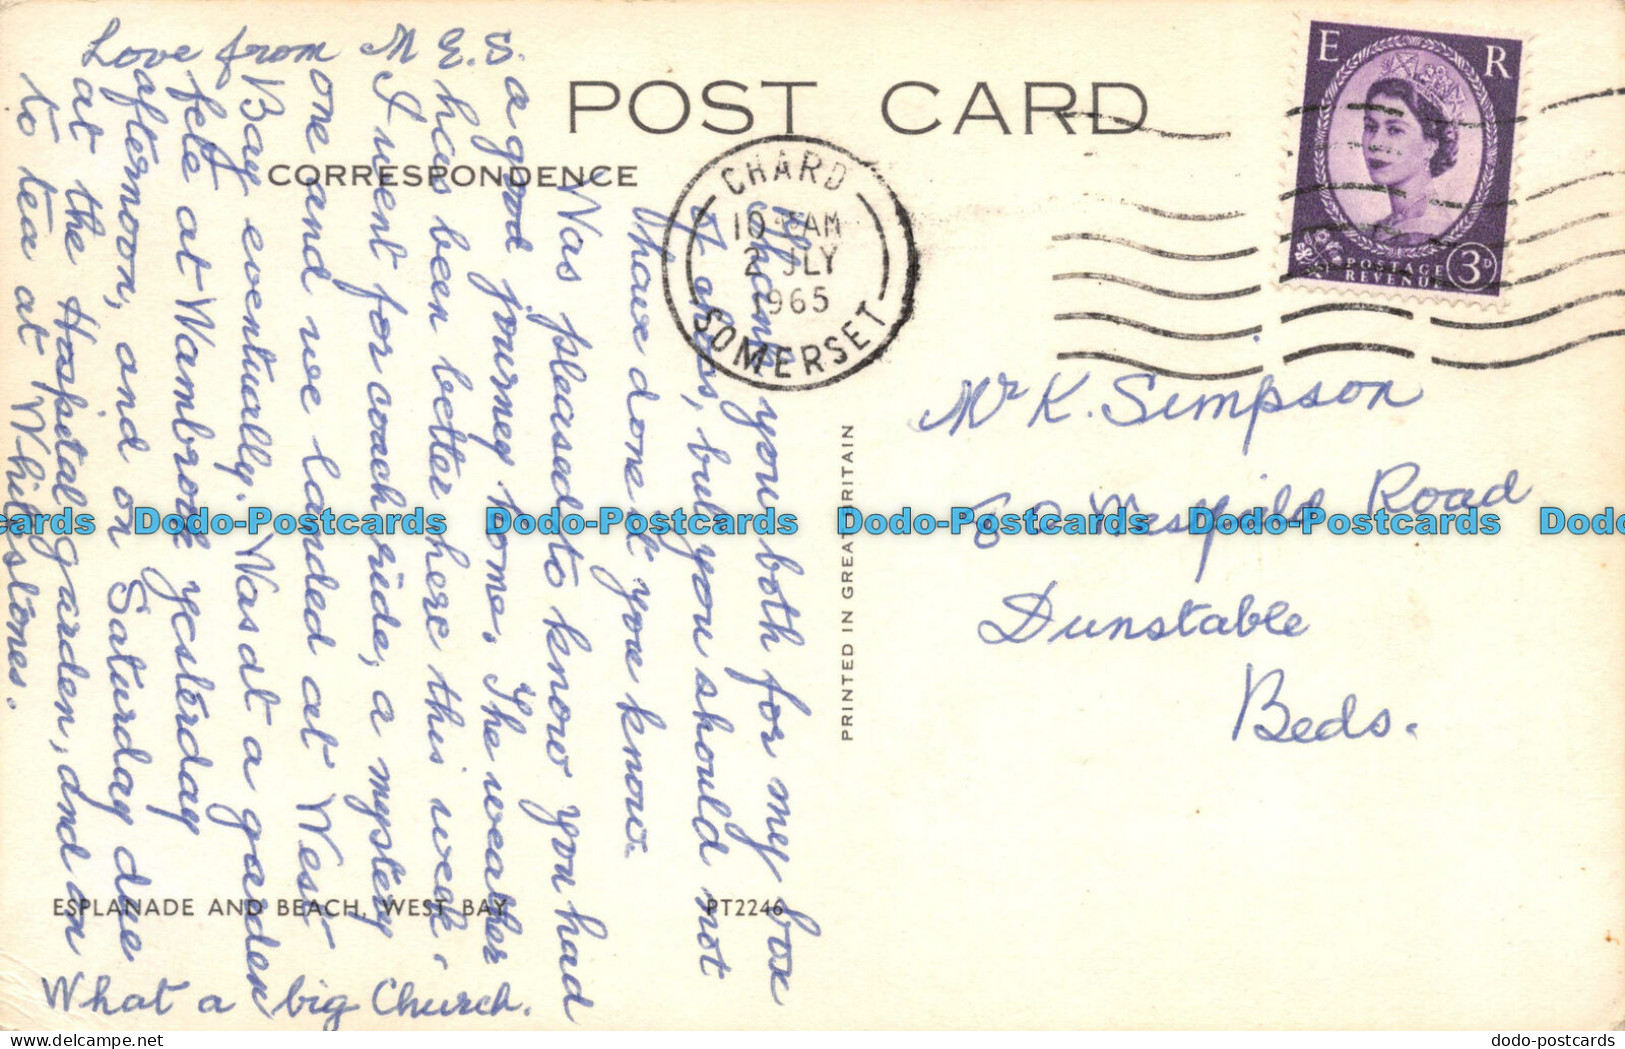 POST CARD
CORRESPONDENCE
E R
POSTAGE
REVENUE
3D
CHARD
10 AM
2 JLY
1965
SOMERSET
Mr K. Simpson
Road
Dunstable
Beds.
PRINTED IN GREAT BRITAIN
Thank you both for my box
of but you should not
have done it you know.
Was pleased to know you had
a good journey home. The weather
has been better here this week.
I went for coach ride, a mystery
one and we landed at West
Bay eventually. Was at a garden
fete at Wambrook yesterday
afternoon, and on Saturday due
at the Hospital garden, and on
to tea at Whitstones.
Love from M E. S.
What a big Church.
ESPLANADE AND BEACH, WEST BAY
PT2246
Dodo-Postcards Dodo-Postcards Dodo-Postcards Dodo-Postcards
dodo-postcards